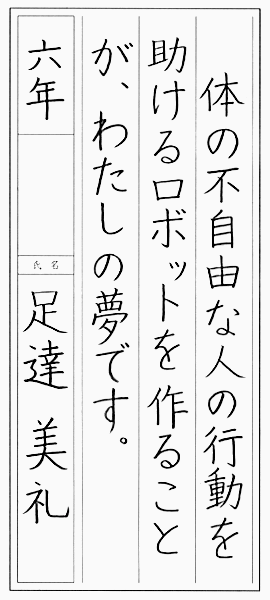 体の不自由な人の行動を
助けるロボットを作ること
が、わたしの夢です。
六年
氏名
足達 美礼